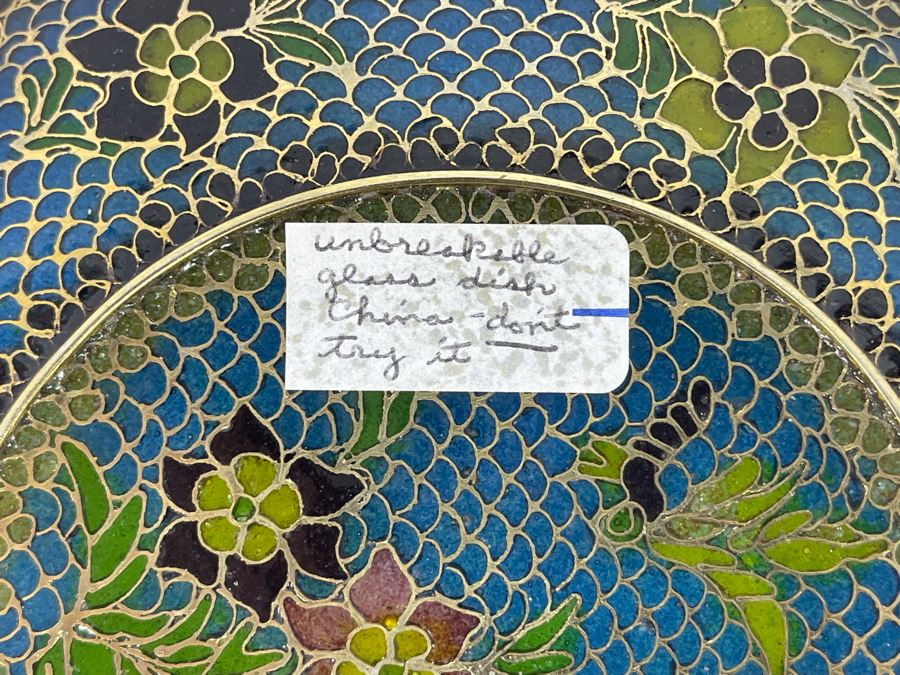 unbreakable
glass dish
China - don't
try it